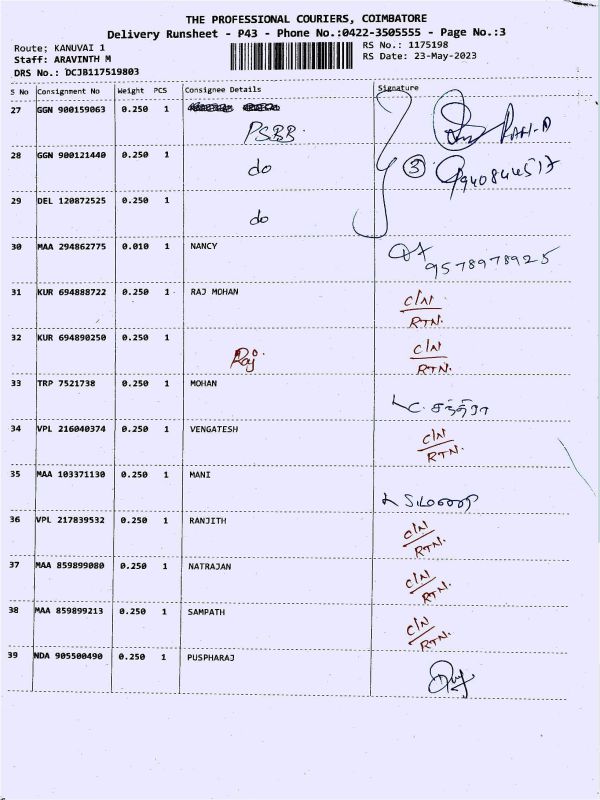 THE PROFESSIONAL COURIERS, COIMBATORE
Delivery Runsheet - P43 - Phone No.:0422-3505555 - Page No.:3
Route; KANUVAI 1 RS No.: 1175198
Staff: ARAVINTH M RS Date: 23-May-2023
DRS No.: DCJB117519803
S No Consignment No Weight PCS Consignee Details Signature
27 GGN 900159063 0.250 1
PSBB.
28 GGN 900121440 0.250 1 do 3
29 DEL 120872525 0.250 1
do
30 MAA 294862775 0.010 1 NANCY
9578978925
31 KUR 694888722 0.250 1 RAJ MOHAN C/N
RTN.
32 KUR 694890250 0.250 1 C/N
Raj. RTN.
33 TRP 7521738 0.250 1 MOHAN
C. சந்திரா
34 VPL 216040374 0.250 1 VENGATESH C/N
RTN.
35 MAA 103371130 0.250 1 MANI
36 VPL 217839532 0.250 1 RANJITH C/N
RTN.
37 MAA 859899080 0.250 1 NATRAJAN C/N
RTN.
38 MAA 859899213 0.250 1 SAMPATH C/N
RTN.
39 NDA 905500490 0.250 1 PUSPHARAJ